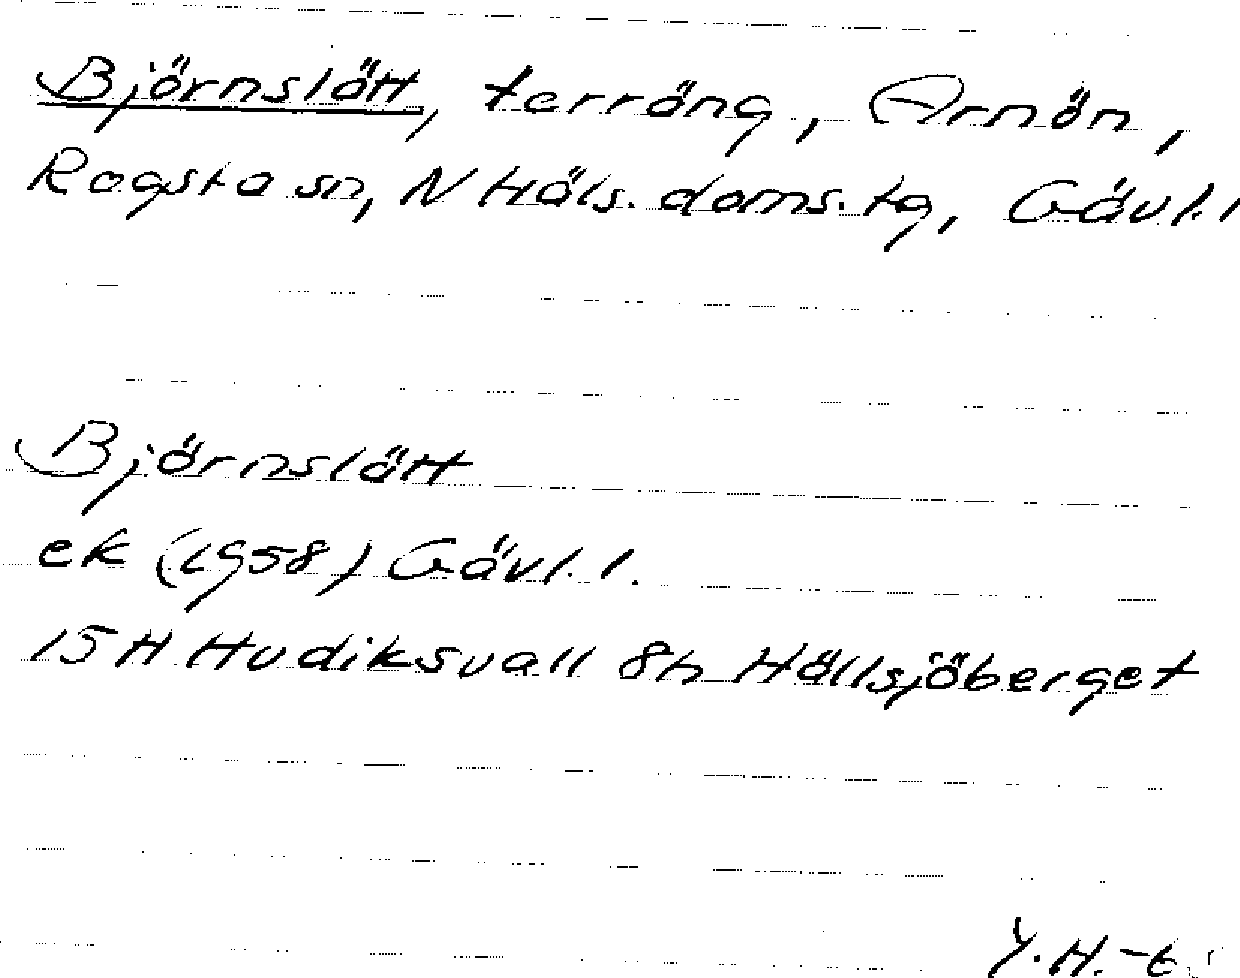 Björnslått, terräng, Arnön,
Rogsta sn, N Häls. doms.tg, Gävl.l
Björnslått
ek (1958) Gävl.l.
15H Hudiksvall 8h Hällsjöberget
Y.H.-t